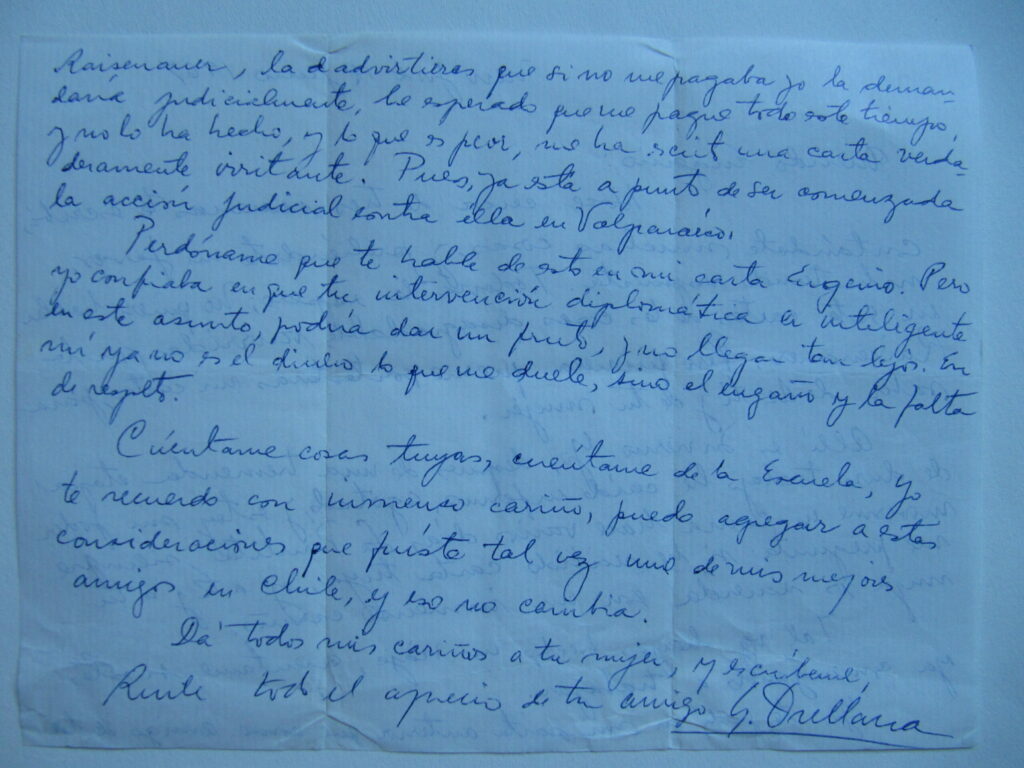 Raisenauer, la advirtieras que si no me pagaba yo la deman-
daría judicialmente, he esperado que me pague todo este tiempo,
y no lo ha hecho, y lo que es peor, me ha scrit una carta verda-
deramente irritante. Pues, ya está a punto de ser comenzada
la acción judicial contra élla en Valparaíso.
Perdóname que te hable de esto en mi carta Eugenio. Pero
yo confiaba en que tu intervención diplomática e inteligente
en este asunto, podría dar un fruto, y no llegar tan lejos. En
mí ya no es el dinero lo que me duele, sino el engaño y la falta
de respeto.
Cuéntame cosas tuyas, cuéntame de la Escuela, yo
te recuerdo con inmenso cariño, puedo agregar a estas
consideraciones que fuiste tal vez uno de mis mejores
amigos en Chile, y eso no cambia.
Dá todos mis cariños a tu mujer, y escríbeme,
todo el aprecio de tu amigo G. Orellana